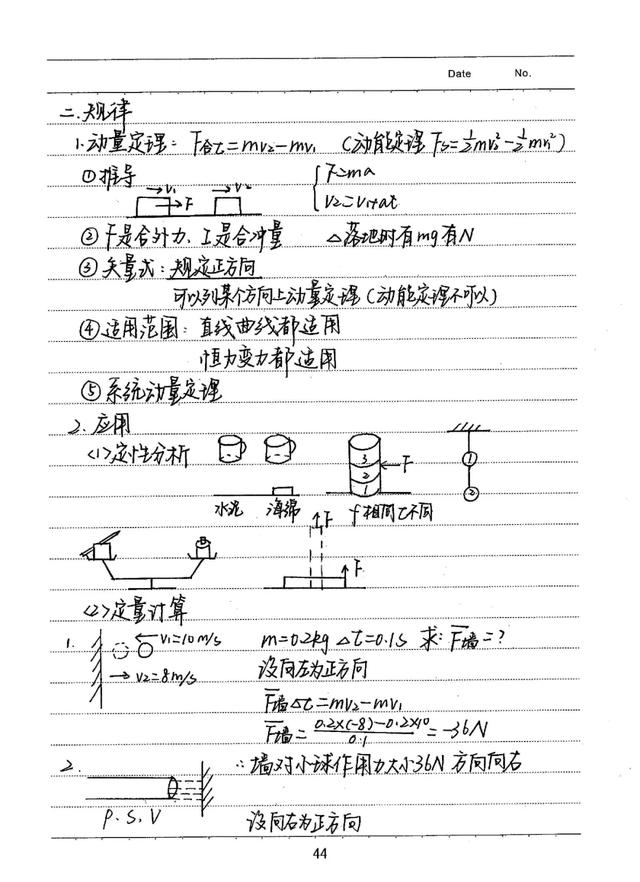 Date No.
二.规律
1.动量定理: F合t=mv₂-mv₁ (动能定理 Fs=½mv₂²-½mv₁²)
①推导 v₁ F v₂ { F=ma
v₂=v₁+at
②F是合外力、I是合冲量 △落地时有mg有N
③矢量式: 规定正方向
可以列某个方向上动量定理(动能定理不可以)
④适用范围: 直线曲线都适用
恒力变力都适用
⑤系统动量定理
2.应用
<1>定性分析 3 2 1 F ① ②
水泥 海绵 f相同t不同
F F
<2>定量计算
1. v₁=10m/s m=0.2kg △t=0.1s 求: F̅墙=?
v₂=8m/s 设向左为正方向
F̅墙△t=mv₂-mv₁
F̅墙=0.2×(-8)-0.2×10/0.1=-36N
2. ∴墙对小球作用力大小36N 方向向右
ρ.S.V 设向右为正方向
44